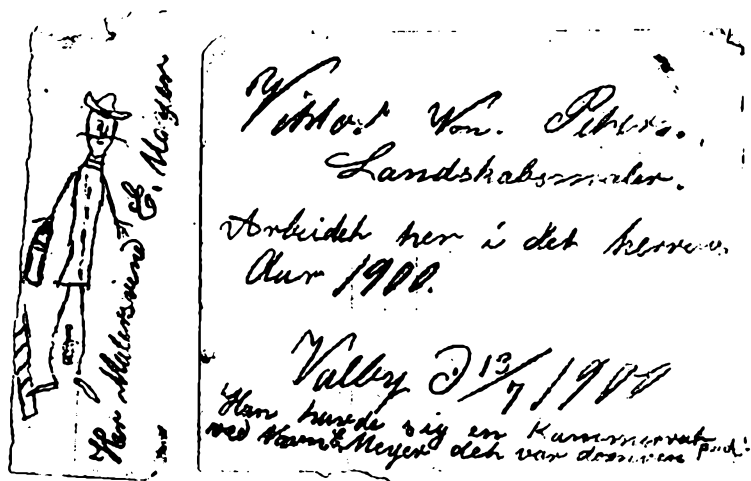 Her Malersvend E. Meyer
Viktor Von. Peters.
Landskabsmaler.
Arbeidet her i det herrens
Aar 1900.
Valby d 13/7 1900
Han havde sig en Kammerat
ved Navn E. Meyer det var